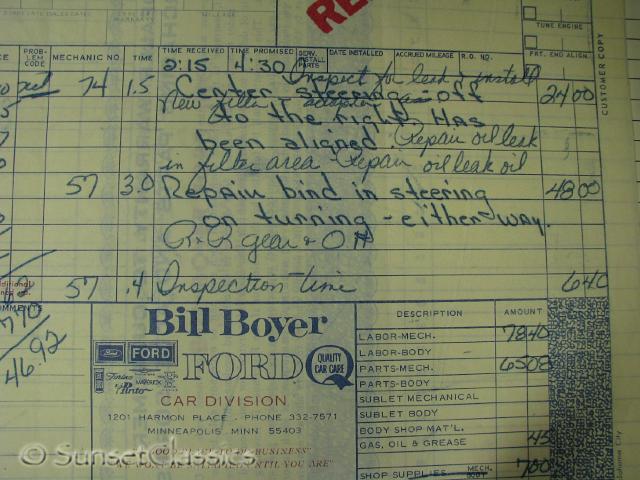 RE
TUNE ENGINE
FRT. END ALIGN.
CUSTOMER COPY
PROB-LEM CODE
MECHANIC NO.
TIME
TIME RECEIVED
TIME PROMISED
SERV. INSTALL PARTS
DATE INSTALLED
ACCRUED MILEAGE
R.O. NO.
2:15 4:30
Inspect for leak & install
74 1.5 Center steering - off 24 00
New filter adapter
to the right. Has
been aligned. Repair oil leak
in filter area - Repair oil leak oil
57 3.0 Repair bind in steering 48 00
on turning - either way.
R & R gear & OH
57 .4 Inspection time 6 40
46.92
Bill Boyer
FORD
FORD
Torino
Pinto
QUALITY CAR CARE
CAR DIVISION
1201 HARMON PLACE - PHONE 332-7571
MINNEAPOLIS, MINN 55403
DESCRIPTION AMOUNT
LABOR-MECH. 78 40
LABOR-BODY
PARTS-MECH. 65 08
PARTS-BODY
SUBLET MECHANICAL
SUBLET BODY
BODY SHOP MAT'L.
GAS, OIL & GREASE 45
SHOP SUPPLIES MECH. 7 00
© SunsetClassics